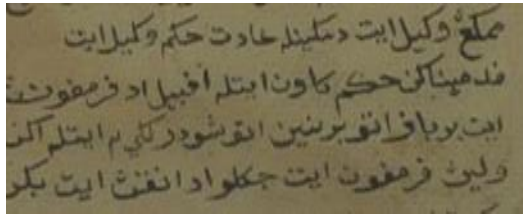 وكيل ايت دمكينله عادة حكم وكيل ايت
حكم كاون ايتله افبيل اد فرمفون
ايت برباف اتو برنينين اتو شودر لكي٢ ايتله اكن
وليڽ فرمفون ايت جكلو اد انقڽ ايت بكر